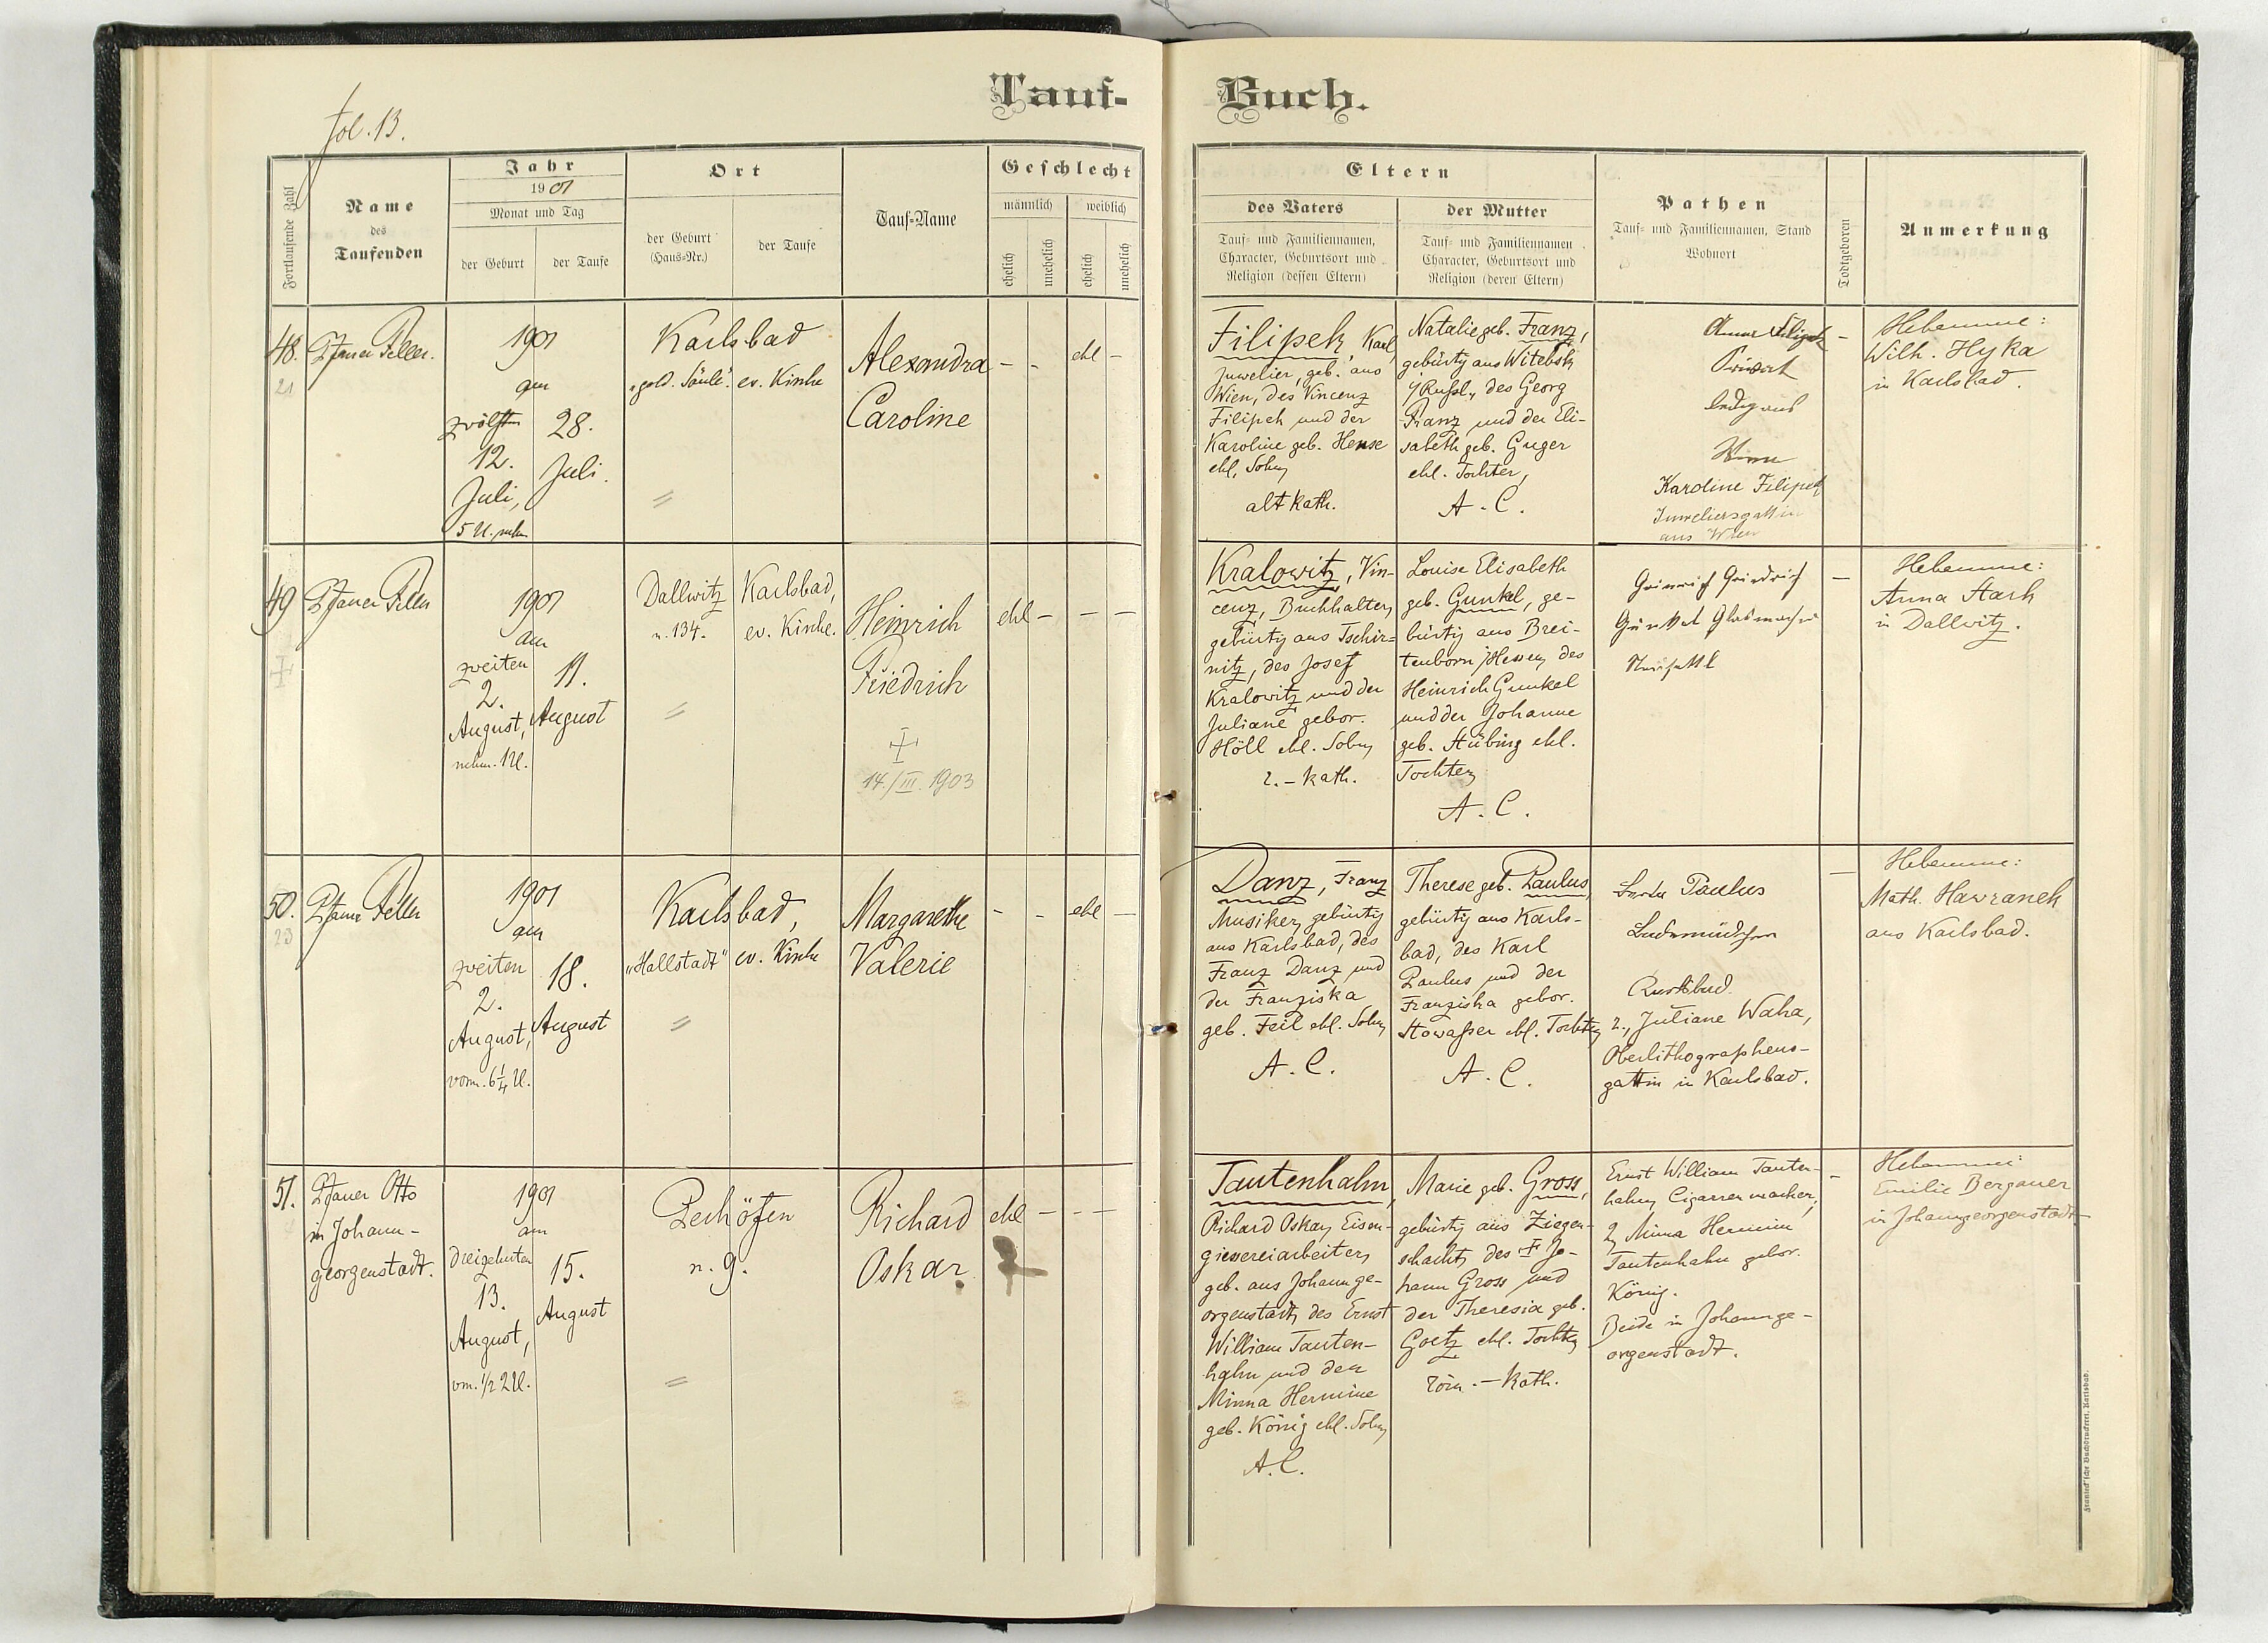 fol. 13.
Tauf-
Buch.
Fortlaufende Zahl
Name
des
Taufenden
Jahr
1901
Monat und Tag
der Geburt
der Taufe
Ort
der Geburt
(Haus-Nr.)
der Taufe
Tauf-Name
Geschlecht
männlich
weiblich
ehelich
unehelich
ehelich
unehelich
Eltern
des Vaters
Tauf- und Familiennamen,
Character, Geburtsort und
Religion (dessen Eltern)
der Mutter
Tauf- und Familiennamen
Character, Geburtsort und
Religion (deren Eltern)
Pathen
Tauf- und Familiennamen, Stand
Wohnort
Todtgeboren
Anmerkung
48.
21
Pfarrer Feller.
1901
am
zwölften
12.
Juli,
5 U. nchm.
28.
Juli.
Karlsbad
"gold. Säule".
ev. Kirche
Alexandra
Caroline
-
-
ehl
-
Filipek, Karl,
Juwelier, geb. aus
Wien, des Vincenz
Filipek und der
Karoline geb. Hense
ehl. Sohn,
altkath.
Natalie geb. Franz,
gebürtig aus Witebsk
i/Rußl., des Georg
Franz und der Eli-
sabeth geb. Guger
ehl. Tochter,
A. C.
Anna Filipek
Privat
ledig aus
Wien
Karoline Filipek
Juweliersgattin
aus Wien
-
Hebamme:
Wilh. Hyka
in Karlsbad.
49
Pfarrer Feller
1901
am
zweiten
2.
August,
nchm. 1 U.
11.
August
Dallwitz
n. 134.
Karlsbad,
ev. Kirche.
Heinrich
Friedrich
14./III. 1903
ehl
-
-
-
Kralowitz, Vin-
cenz, Buchhalter,
gebürtig aus Tschir-
nitz, des Josef
Kralowitz und der
Juliane gebor.
Höll ehl. Sohn,
r.-kath.
Louise Elisabeth
geb. Gunkel, ge-
bürtig aus Brei-
tenborn /Hessen, des
Heinrich Gunkel
und der Johanne
geb. Stübing ehl.
Tochter,
A. C.
Heinrich Friedrich
Gunkel Glasmacher
-
Hebamme:
Anna Stark
in Dallwitz.
50.
23
Pfarrer Feller
1901
am
zweiten
2.
August,
vorm. 6¼ U.
18.
August
Karlsbad,
"Hallstadt"
ev. Kirche
Margarethe
Valerie
-
-
ehl
-
Danz, Franz
Musiker, gebürtig
aus Karlsbad, des
Franz Danz und
der Franziska
geb. Feil ehl. Sohn,
A. C.
Therese geb. Paulus,
gebürtig aus Karls-
bad, des Karl
Paulus und der
Franziska gebor.
Stowasser ehl. Tochter,
A. C.
Paulus
Ladnermädchen
Karlsbad.
2., Juliane Waha,
Oberlithographens-
gattin in Karlsbad.
-
Hebamme:
Math. Hawranek
aus Karlsbad.
51.
Pfarrer Otto
in Johann-
georgenstadt.
1901
am
dreizehnten
13.
August,
vm. ½2 U.
15.
August
Pechöfen
n. 9.
Richard
Oskar
ehl
-
-
-
Tautenhahn,
Richard Oskar, Eisen-
giessereiarbeiter,
geb. aus Johannge-
orgenstadt, des Ernst
William Tauten-
hahn und der
Minna Hermine
geb. König ehl. Sohn,
A. C.
Marie geb. Gross,
gebürtig aus Ziegen-
schacht, des ‡ Jo-
hann Gross und
der Theresia geb.
Goetz ehl. Tochter,
röm.-kath.
Ernst William Tauten-
hahn, Cigarrenmacher,
2, Minna Hermine
Tautenhahn gebor.
König.
Beide in Johannge-
orgenstadt.
-
Hebamme:
Emilie Bergauer
in Johanngeorgenstadt